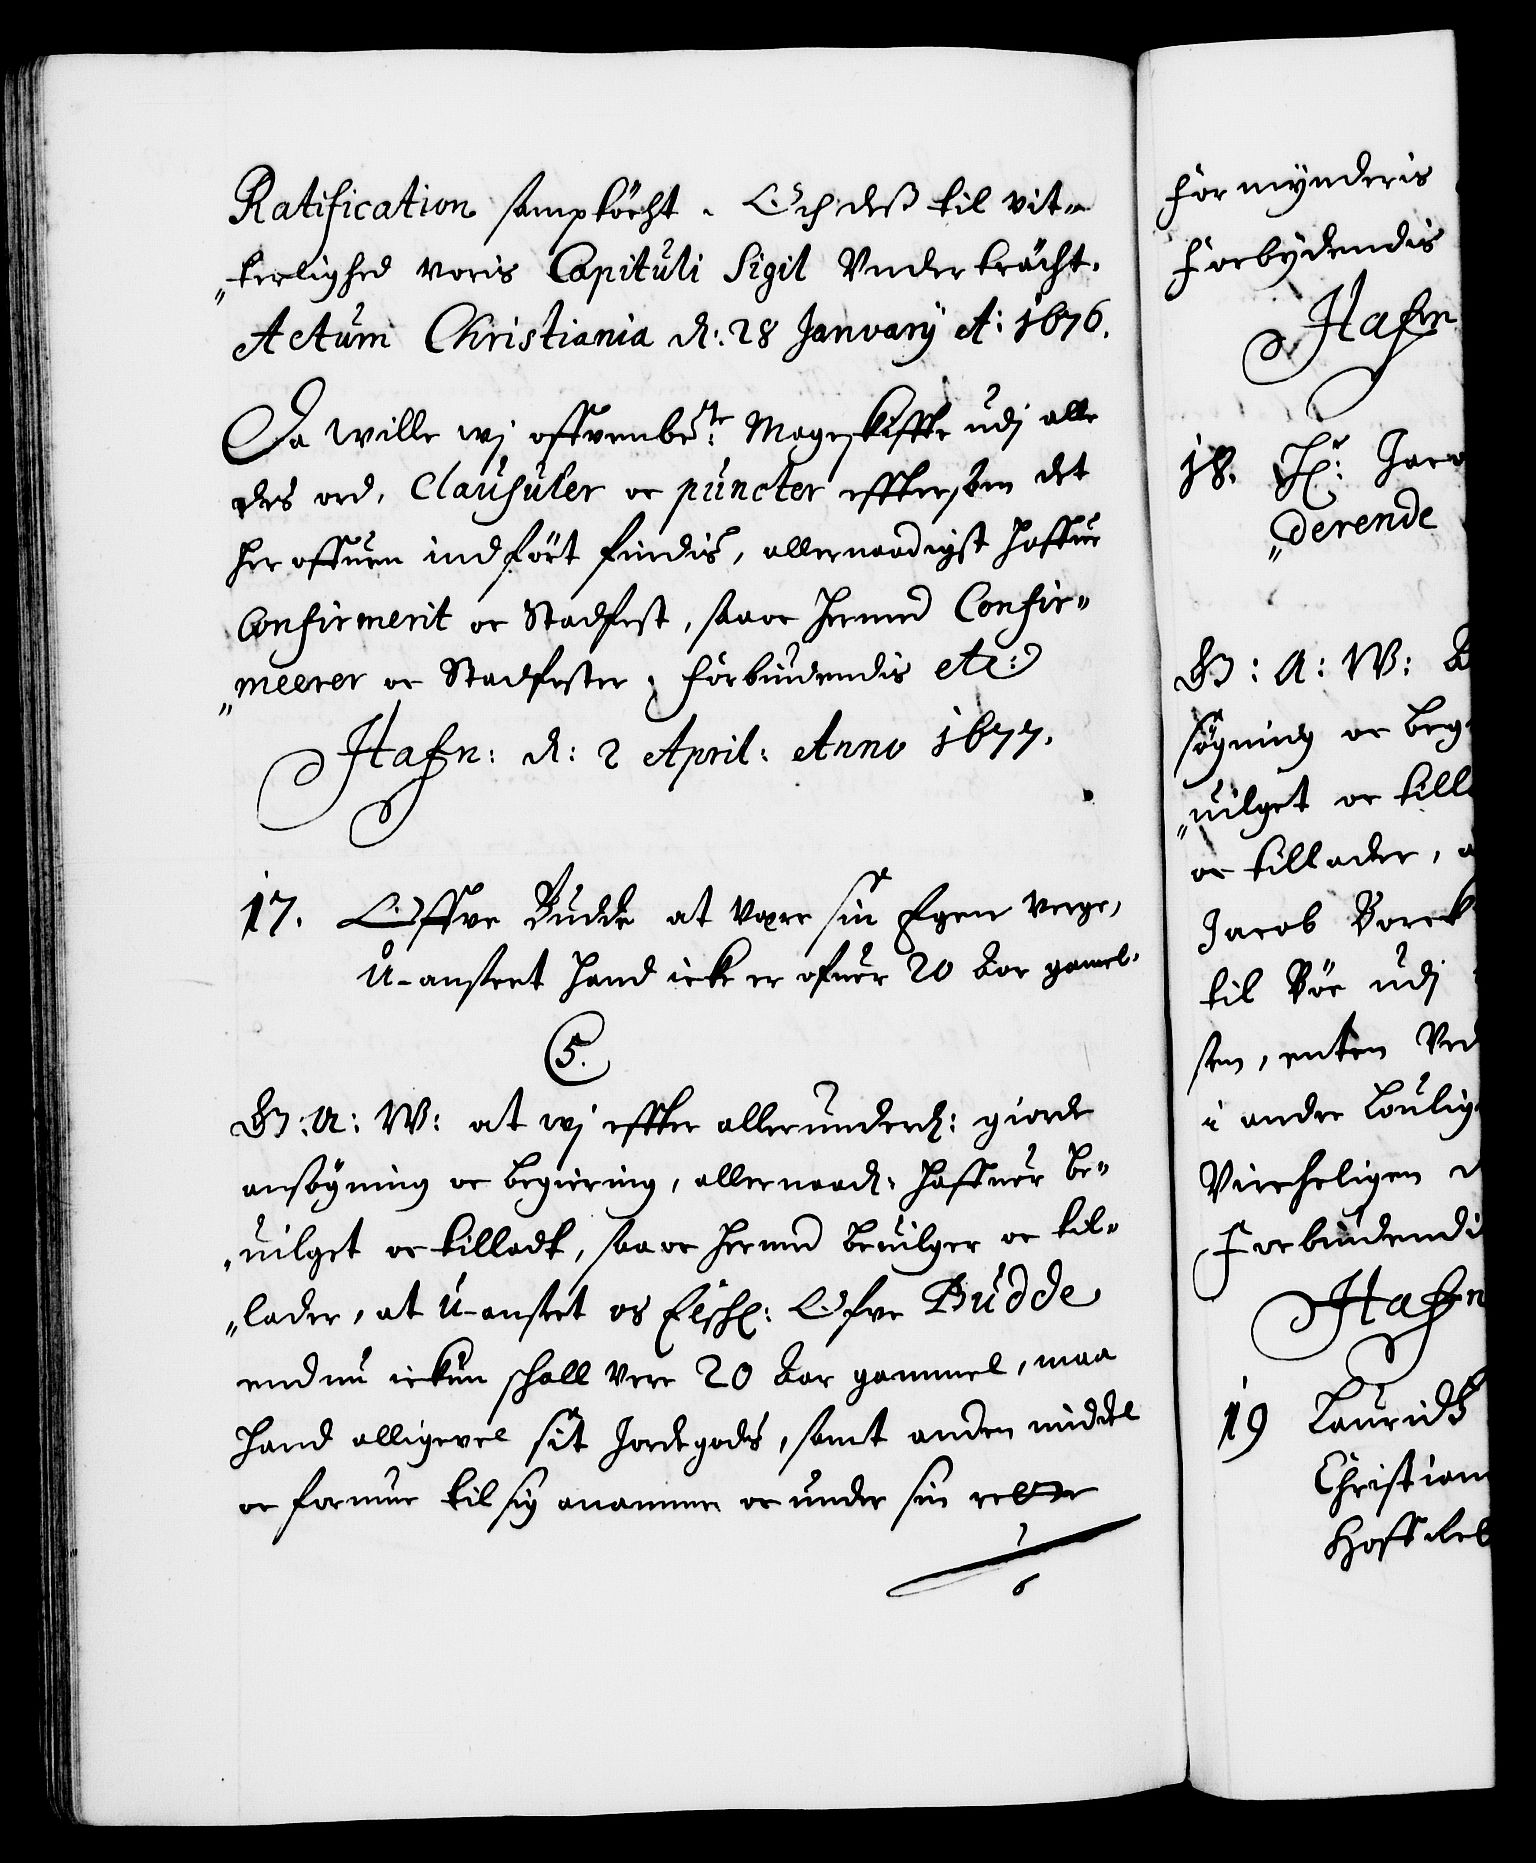 Ratification samptöcht. Och deß til vit-
„terlighed voris Capituli Sigil Under tröcht.
Actum Christiania d: 28 January A: 1676.
Da wille wj offvenbete: Mageskiffte udj alle
des ord, Clausuler oc puncter effter som det
her offuen indført findis, allernaadigst haffue
Confirmerit oc Stadfest, saa oc hermed Confir-
„meerer oc Stadfester, forbiudendis etc:
Hafn: d: 2 April: Anno 1677.
17. Offve Budde at være sin Egen verge,
U-anseet hand icke er ofuer 20 Aar gamel.
5.
G: A: W: at wj effter allerunderd: giorde
ansögning oc begiering, allernaad: haffuer be-
„uilget oc tilladt, saa oc hermed beuilger oc til-
„lader, at U-anseet os Elsshel: Ofve Budde
endnu ickun schall vere 20 Aar gammel, maa
hand alligevel sit Jordegods, samt anden middel
oc formue til sig anamme oc under sin rette
formynderis
forbydendis
Hafn
18. Hr: Jaco
„derende
G: A: W:
søgning oc beg
„uilget oc till
oc tillader,
Jacob Borck
til Böe udj
sten, enten Ved
i andre Loulig
Vircheligen
Forbiudendi
Hafn
19 Lauridtz
Christian
Hoff Ret